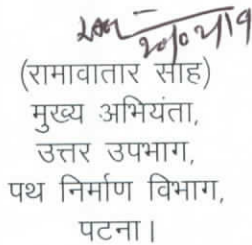 (रामावातार साह)
मुख्य अभियंता,
उत्तर उपभाग,
पथ निर्माण विभाग,
पटना।